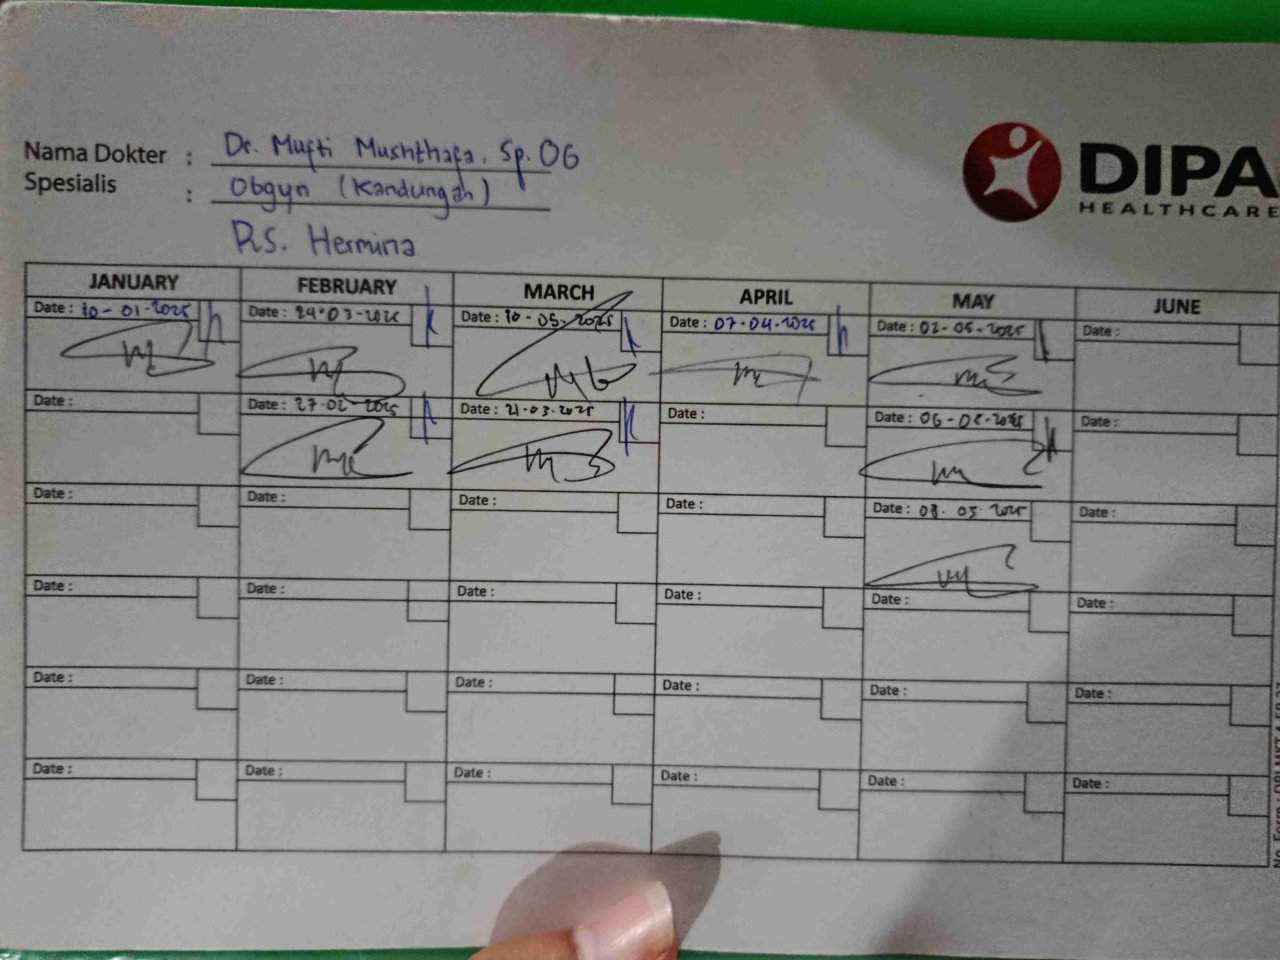 Nama Dokter : Dr. Mufti Mushthafa, Sp.OG
Spesialis : Obgyn (Kandungan)
R.S. Hermina
DIPA
HEALTHCARE
JANUARY FEBRUARY MARCH APRIL MAY JUNE
Date : 10-01-2025 Date : 2025 Date : 2025 Date : 07-04-2025 Date : 2025 Date :
Date : Date : 27-02-2025 Date : 21-03-2025 Date : Date : 2025 Date :
Date : Date : Date : Date : Date : 08-05-2025 Date :
Date : Date : Date : Date : Date : Date :
Date : Date : Date : Date : Date : Date :
Date : Date : Date : Date : Date : Date :
No. Form :